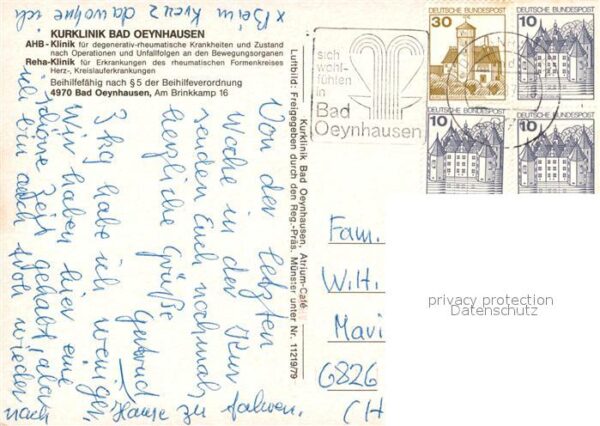 x Beim Kreuz da wohne ich
KURKLINIK BAD OEYNHAUSEN
AHB-Klinik für degenerativ-rheumatische Krankheiten und Zustand
nach Operationen und Unfallfolgen an den Bewegungsorganen
Reha-Klinik für Erkrankungen des rheumatischen Formenkreises
Herz-, Kreislauferkrankungen
Beihilfefähig nach §5 der Beihilfeverordnung
4970 Bad Oeynhausen, Am Brinkkamp 16
Von der letzten
Woche in der Kur
senden Euch nochmals
herzliche Grüße
Gertrud
3 kg habe ich weniger.
Wir haben hier eine
schöne Zeit gehabt, aber
bin auch froh wieder
nach Hause zu fahren.
Kurklinik Bad Oeynhausen, Atrium-Café
Luftbild: Freigegeben durch den Reg.-Präs. Münster unter Nr. 11219/79
sich
wohl-
fühlen
in
Bad
Oeynhausen
DEUTSCHE BUNDESPOST
30
DEUTSCHE BUNDESPOST
10
DEUTSCHE BUNDESPOST
10
DEUTSCHE BUNDESPOST
10
Fam.
W.H.
Mavi
6826
CH
privacy protection
Datenschutz